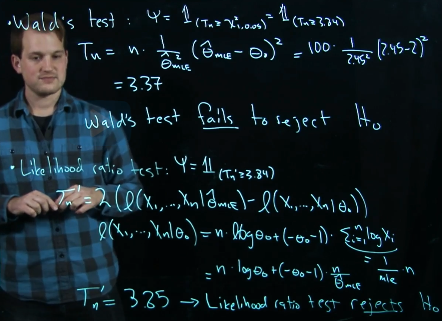 • Wald's test : Ψ = 𝟙(Tₙ ≥ χ²₁,₀.₀₅) = 𝟙(Tₙ ≥ 3.84)
Tₙ = n · 1/θ̂²MLE (θ̂MLE − θ₀)² = 100 · 1/2.45² (2.45−2)²
= 3.37
Wald's test fails to reject H₀
• Likelihood ratio test: Ψ = 𝟙(Tₙ' ≥ 3.84)
Tₙ' = 2(ℓ(X₁,...,Xₙ|θ̂MLE) − ℓ(X₁,...,Xₙ|θ₀))
ℓ(X₁,...,Xₙ|θ₀) = n · log θ₀ + (−θ₀−1) · Σⁿᵢ₌₁ log Xᵢ
= 1/mle · n
= n · log θ₀ + (−θ₀−1) · n/θ̂MLE
Tₙ' = 3.85 → Likelihood ratio test rejects H₀